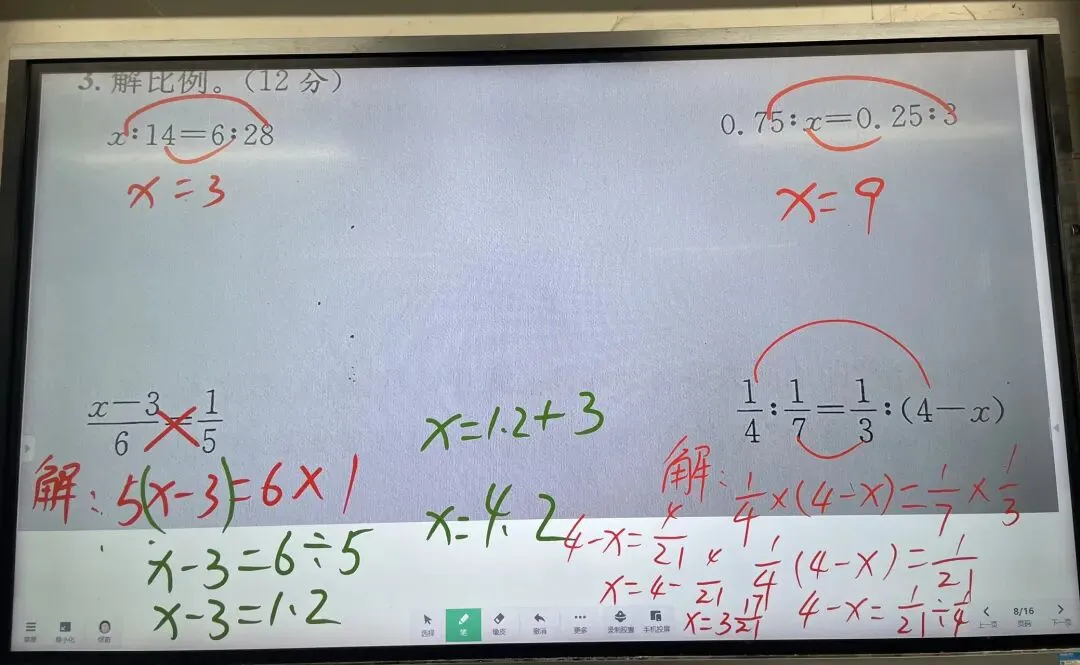 3. 解比例。(12分)
x:14=6:28
x=3
0.75:x=0.25:3
x=9
(x-3)/6=1/5
解: 5(x-3)=6×1
x-3=6÷5
x-3=1.2
x=1.2+3
x=4.2
1/4:1/7=1/3:(4-x)
解: 1/4×(4-x)=1/7×1/3
1/4(4-x)=1/21
4-x=1/21÷1/4
4-x=4/21
x=4-4/21
x=3 17/21
选择
笔
橡皮
撤消
更多
录制胶囊
手机投屏
上一页
8/16
页码
下一页